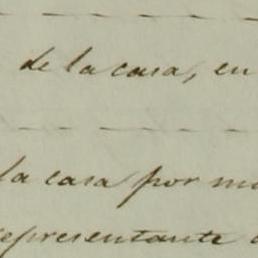 de la casa, en
la casa por
representante